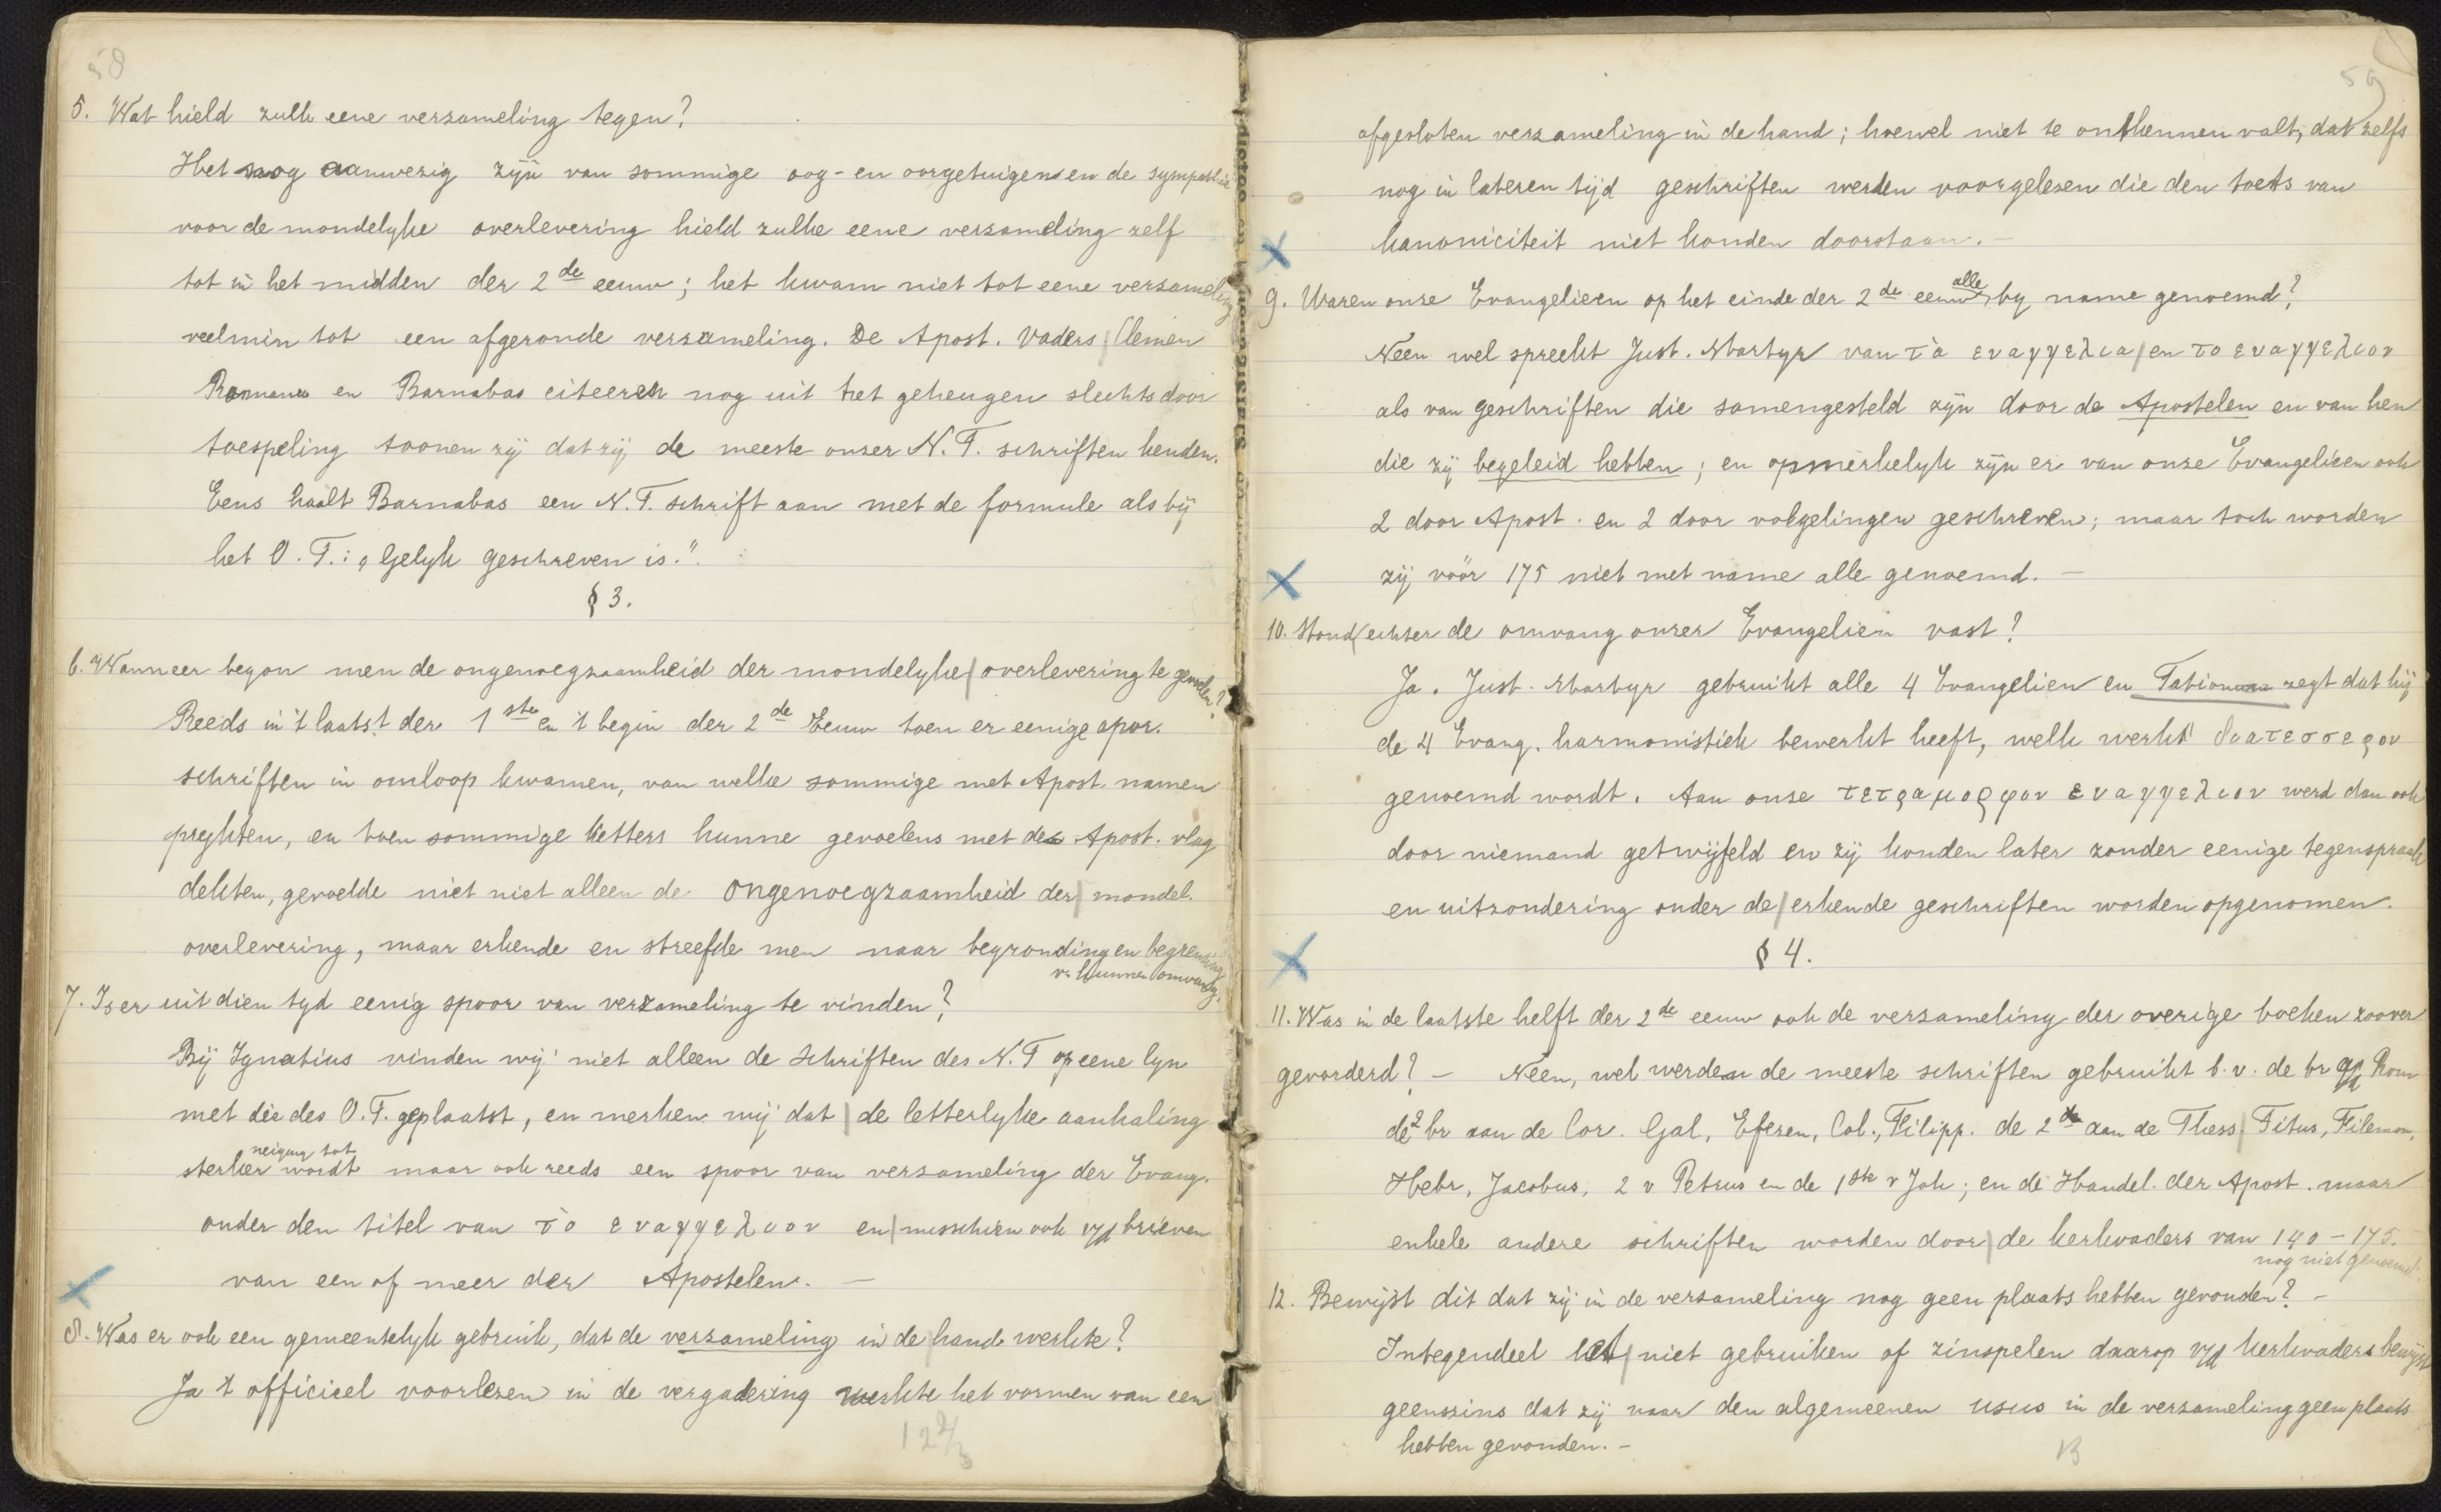 58
5. Wat hield zulk eene verzameling tegen?
Het nog aanwezig zijn van sommige oog- en oorgetuigen en de sympathie
voor de mondelyke overlevering hield zulke eene verzameling zelf
tot in het midden der 2de eeuw; het kwam niet tot eene verzameling
veelmin tot een afgeronde verzameling. De Apost. Vaders Clemen
Romanus en Barnabas citeeren nog uit het geheugen slechts door
toespeling toonen zij dat zij de meeste onzer N.T. schriften kenden.
Eens haalt Barnabas een N.T. schrift aan met de formule als bij
het O.T.: „Gelyk geschreven is.".
§ 3.
6. Wanneer begon men de ongenoegzaamheid der mondelyke overlevering te gevoelen?
Reeds in 't laatst der 1ste en 't begin der 2de Eeuw toen er eenige apor.
schriften in omloop kwamen, van welke sommige met Apost. namen
prijkten, en toen sommige ketters hunne gevoelens met de Apost. vlag
dekten, gevoelde niet niet alleen de ongenoegzaamheid der mondel.
overlevering, maar erkende en streefde men naar begronding en begrenzing
v. hunnen omvang.
7. Is er uit dien tyd eenig spoor van verzameling te vinden?
Bij Ignatius vinden wij niet alleen de schriften des N.T op eene lyn
met die des O.T. geplaatst, en merken wij dat de letterlyke aanhaling
neiging tot
sterker wordt maar ook reeds een spoor van verzameling der Evang.
onder den titel van τὸ ευαγγελιον en misschien ook v/d brieven
van een of meer der Apostelen. —
8. Was er ook een gemeentelyk gebruik, dat de verzameling in de hand werkte?
Ja 't officieel voorlezen in de vergadering werkte het vormen van een
12 2/3
59
afgesloten verzameling in de hand; hoewel niet te ontkennen valt, dat zelfs
nog in lateren tijd geschriften werden voorgelezen die den toets van
kanoniciteit niet konden doorstaan. —
alle
9. Waren onze Evangelieen op het einde der 2de eeuw by name genoemd?
Neen wel spreekt Just. Martyr van τὰ ευαγγελια en το ευαγγελιον
als van geschriften die samengesteld zijn door de Apostelen en van hen
die zij begeleid hebben; en opmerkelyk zijn er van onze Evangelieen ook
2 door Apost. en 2 door volgelingen geschreven; maar toch worden
zij vóór 175 niet met name alle genoemd. —
10. Stond echter de omvang onzer Evangelien vast?
Ja. Just. Martyr gebruikt alle 4 Evangelien en Tatian zegt dat hij
de 4 Evang. harmonistiek bewerkt heeft, welk werk διατεσσερον
genoemd wordt. Aan onze τετραμορφον ευαγγελιον werd dan ook
door niemand getwijfeld en zij konden later zonder eenige tegenspraak
en uitzondering onder de erkende geschriften worden opgenomen.
§ 4.
11. Was in de laatste helft der 2de eeuw ook de verzameling der overige boeken zoover
gevorderd? — Neen, wel werden de meeste schriften gebruikt b.v. de br a/d Rom
de 2 br aan de Cor. Gal, Efezen, Col., Filipp. de 2de aan de Thess. Titus, Filemon,
Hebr, Jacobus, 2 v Petrus en de 1ste v Joh; en de Handel. der Apost. maar
enkele andere schriften worden door de kerkvaders van 140 – 175.
nog niet genoemd.
12. Bewijst dit dat zij in de verzameling nog geen plaats hebben gevonden? —
Integendeel het niet gebruiken of zinspelen daarop v/d kerkvaders bewijst
geenszins dat zij naar den algemeenen usus in de verzameling geen plaats
hebben gevonden. —
13